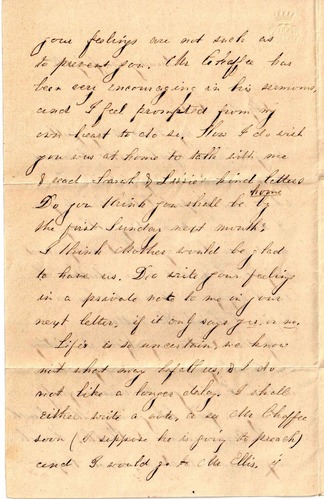 your feelings are not such as
to prevent you. Mr Chaffee has
been very encouraging in his sermons,
and I feel prompted from my
own heart to do so. How I do wish
you was at home to talk with me
& read Sarah & Lizzie's kind letters
home
Do you think you shall be by
the first Sunday next month?
I think Mother would be glad
to have us. Do write your feelings
in a private note to me in your
next letter, if it only says yes, or no.
Life is so uncertain, we know
not what may befall us, & I do
not like a longer delay. I shall
either write a note, or see Mr Chaffee
soon (I suppose he is going to preach)
and I would go to Mr Ellis, if